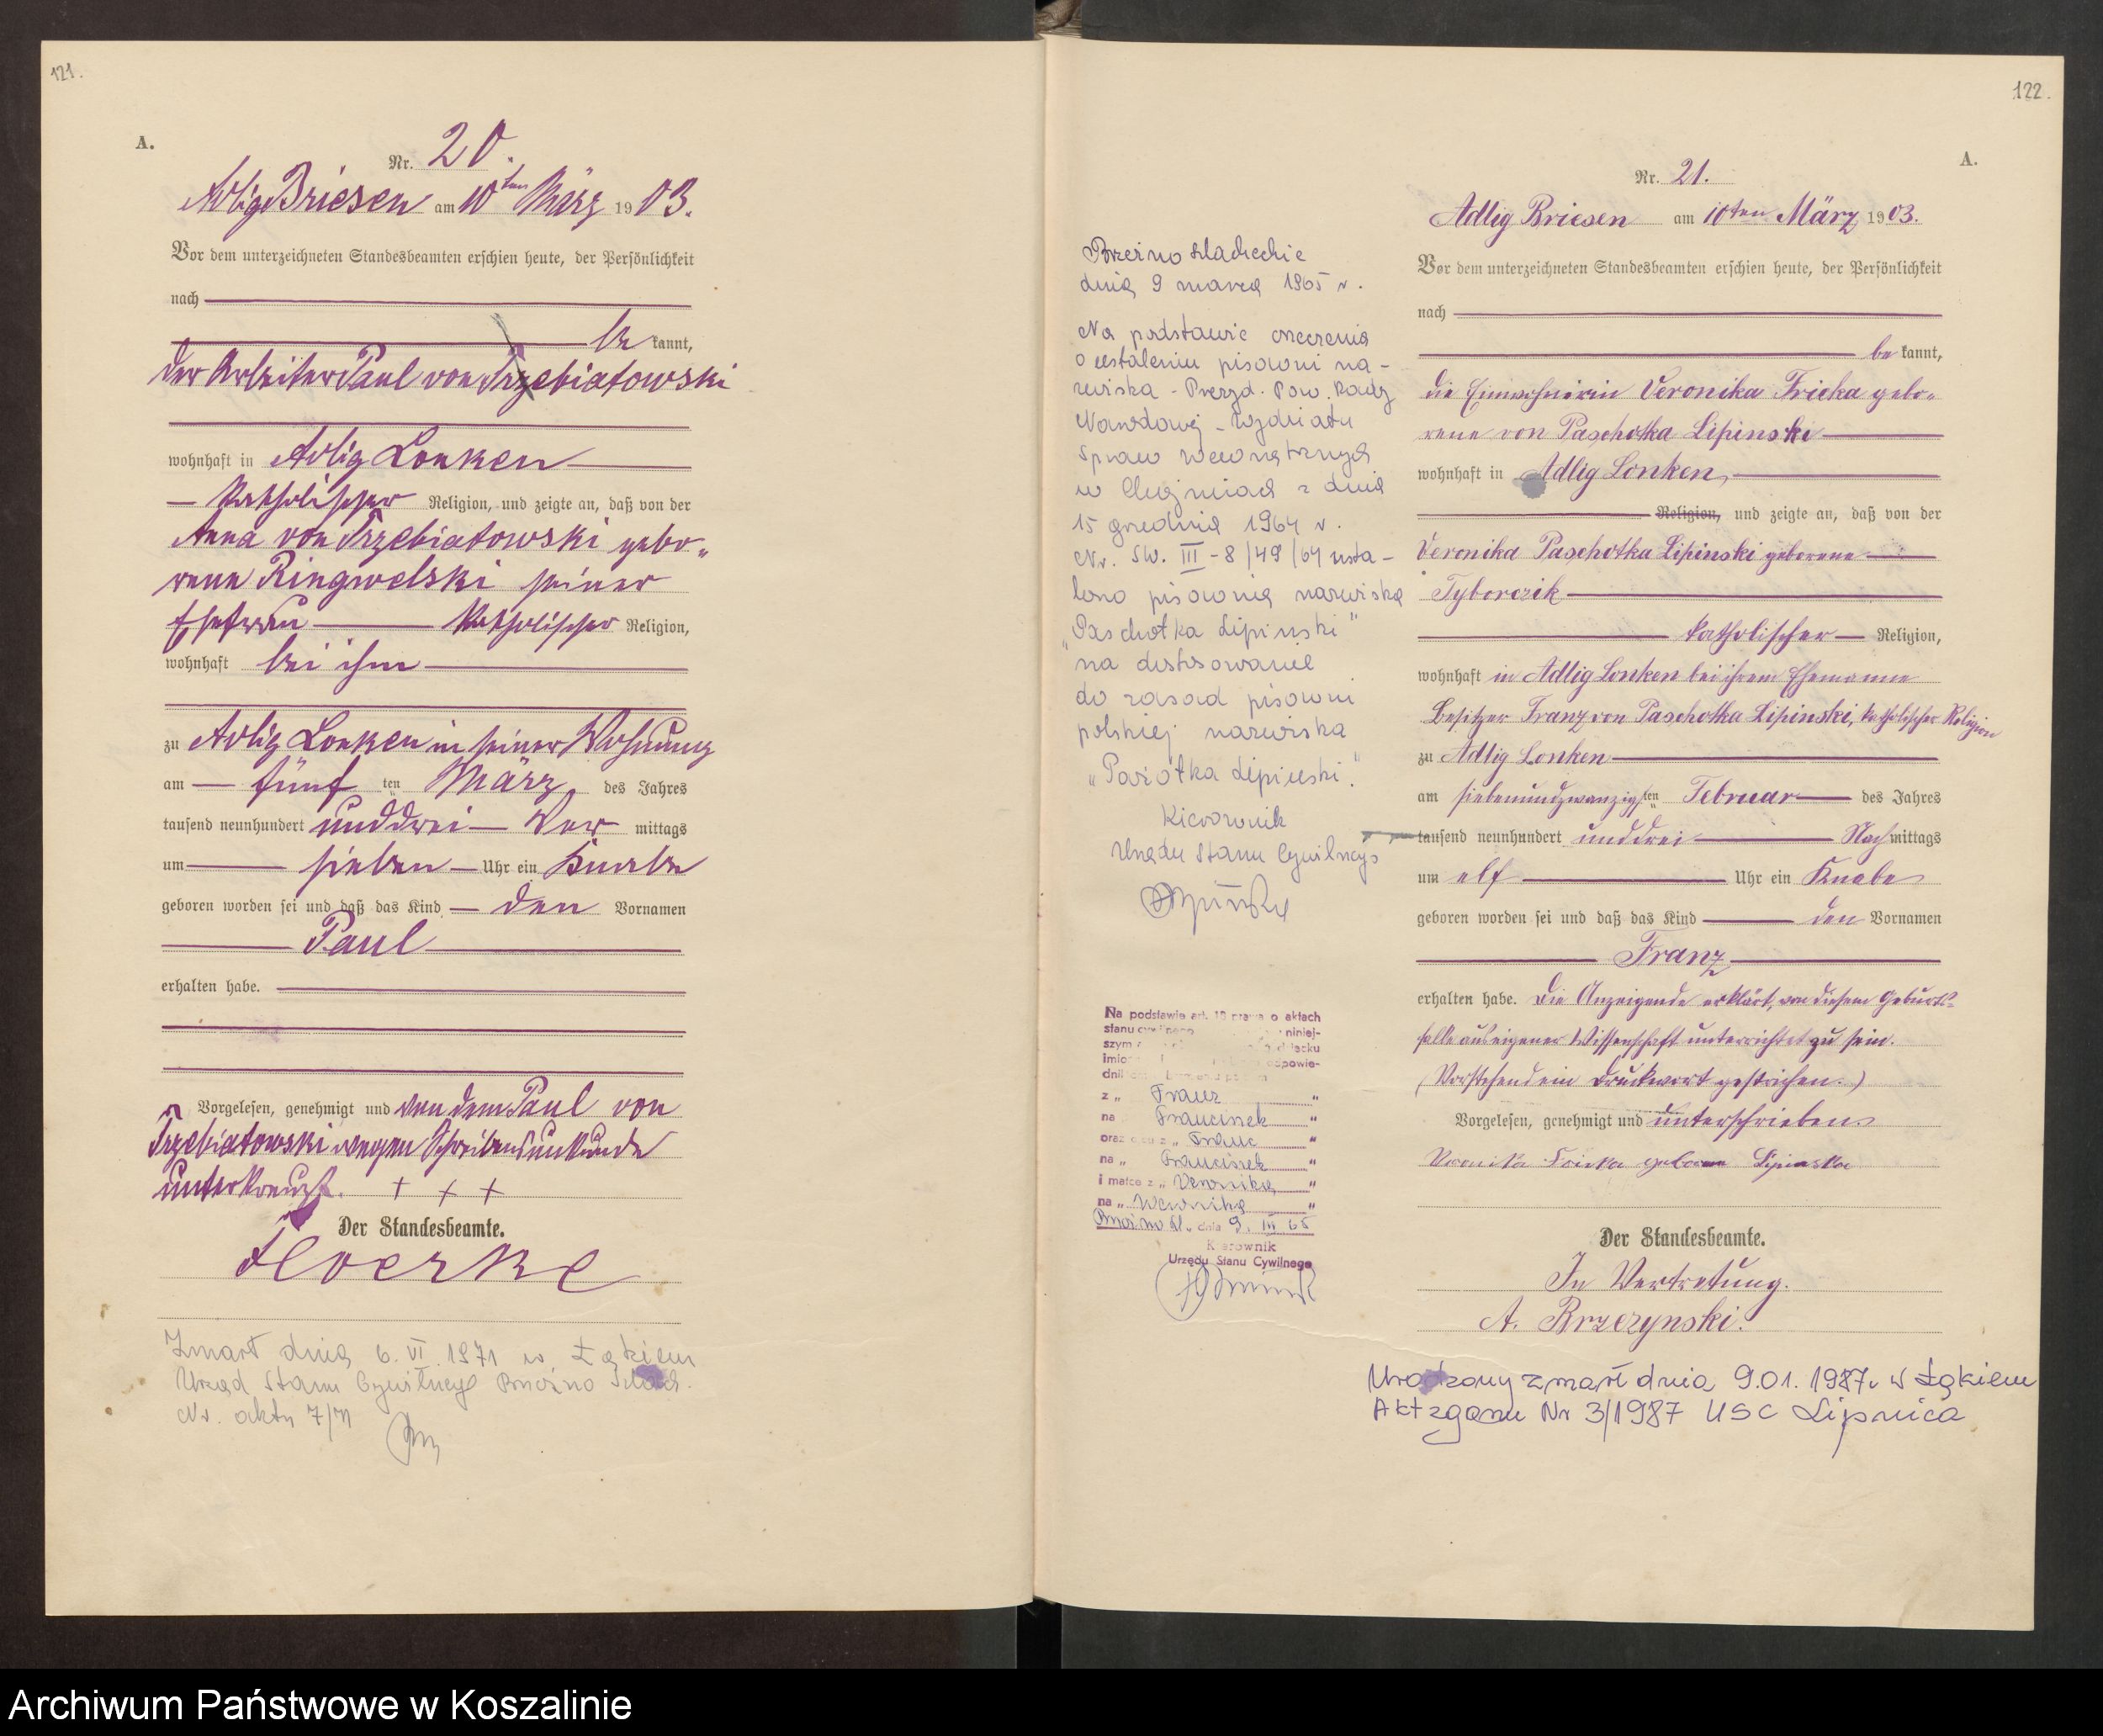 121.
A.
Nr. 20.
Adlig Briesen am 10ten März 1903.
Vor dem unterzeichneten Standesbeamten erschien heute, der Persönlichkeit
nach
be kannt,
der Arbeiter Paul von Trzebiatowski
wohnhaft in Adlig Lonken
katholischer Religion, und zeigte an, daß von der
Anna von Trzebiatowski gebo-
rene Ringwelski seiner
Ehefrau katholischer Religion,
wohnhaft bei ihm
zu Adlig Lonken in seiner Wohnung
am fünf ten März des Jahres
tausend neunhundert unddrei Vor mittags
um sieben Uhr ein Knabe
geboren worden sei und daß das Kind den Vornamen
Paul
erhalten habe.
Vorgelesen, genehmigt und von dem Paul von
Trzebiatowski wegen Schreibensunkunde
unterkreuzt. + + +
Der Standesbeamte.
Zmarł dnia 6. VI. 1971 w Łąkiem
Urząd Stanu Cywilnego Brzeźno Szlach.
Nr. aktu 7/71
122.
A.
Nr. 21.
Adlig Briesen am 10ten März 1903.
Vor dem unterzeichneten Standesbeamten erschien heute, der Persönlichkeit
nach
be kannt,
die Einwohnerin Veronika Fricka gebo-
rene von Paschotka Lipinski
wohnhaft in Adlig Lonken,
Religion, und zeigte an, daß von der
Veronika Paschotka Lipinski geborene
Tyborczik
katholischer Religion,
wohnhaft in Adlig Lonken bei ihrem Ehemanne
Besitzer Franz von Paschotka Lipinski, katholischer Religion
zu Adlig Lonken
am siebenundzwanzigsten Februar des Jahres
tausend neunhundert unddrei Nachmittags
um elf Uhr ein Knabe
geboren worden sei und daß das Kind den Vornamen
Franz
erhalten habe. Die Anzeigende erklärt, von diesem Geburts-
falle aus eigener Wissenschaft unterrichtet zu sein.
(Vorstehend ein Druckwort gestrichen.)
Vorgelesen, genehmigt und unterschrieben
Veronika Fricka geborene Lipinska
Der Standesbeamte.
In Vertretung.
A. Brzezynski.
Urodzony zmarł dnia 9.01.1987r w Łąkiem
Akt zgonu Nr 3/1987 USC Lipnica
Brzeźno Szlacheckie
dnia 9 marca 1965 r.
Na podstawie orzeczenia
o ustaleniu pisowni na-
zwiska - Prezyd. Pow. Rady
Narodowej - Wydziału
Spraw Wewnętrznych
w z dnia
15 grudnia 1964 r.
Nr. SW. III - 8/49/64 usta-
lono pisownię nazwiska
"Paschotka Lipinski"
na dostosowanie
do zasad pisowni
polskiej nazwiska
Kierownik
Urzędu Stanu Cywilnego
Na podstawie art. prawa o aktach
stanu cywilnego niniej-
szym
z „ Franz "
na Franciszek "
oraz ojcu z „ Franz "
na „ Franciszek "
i matce z „ Veronika "
na „ Weronika "
Brzeźno Szl. dnia 9. III 65
Kierownik
Urzędu Stanu Cywilnego
Archiwum Państwowe w Koszalinie